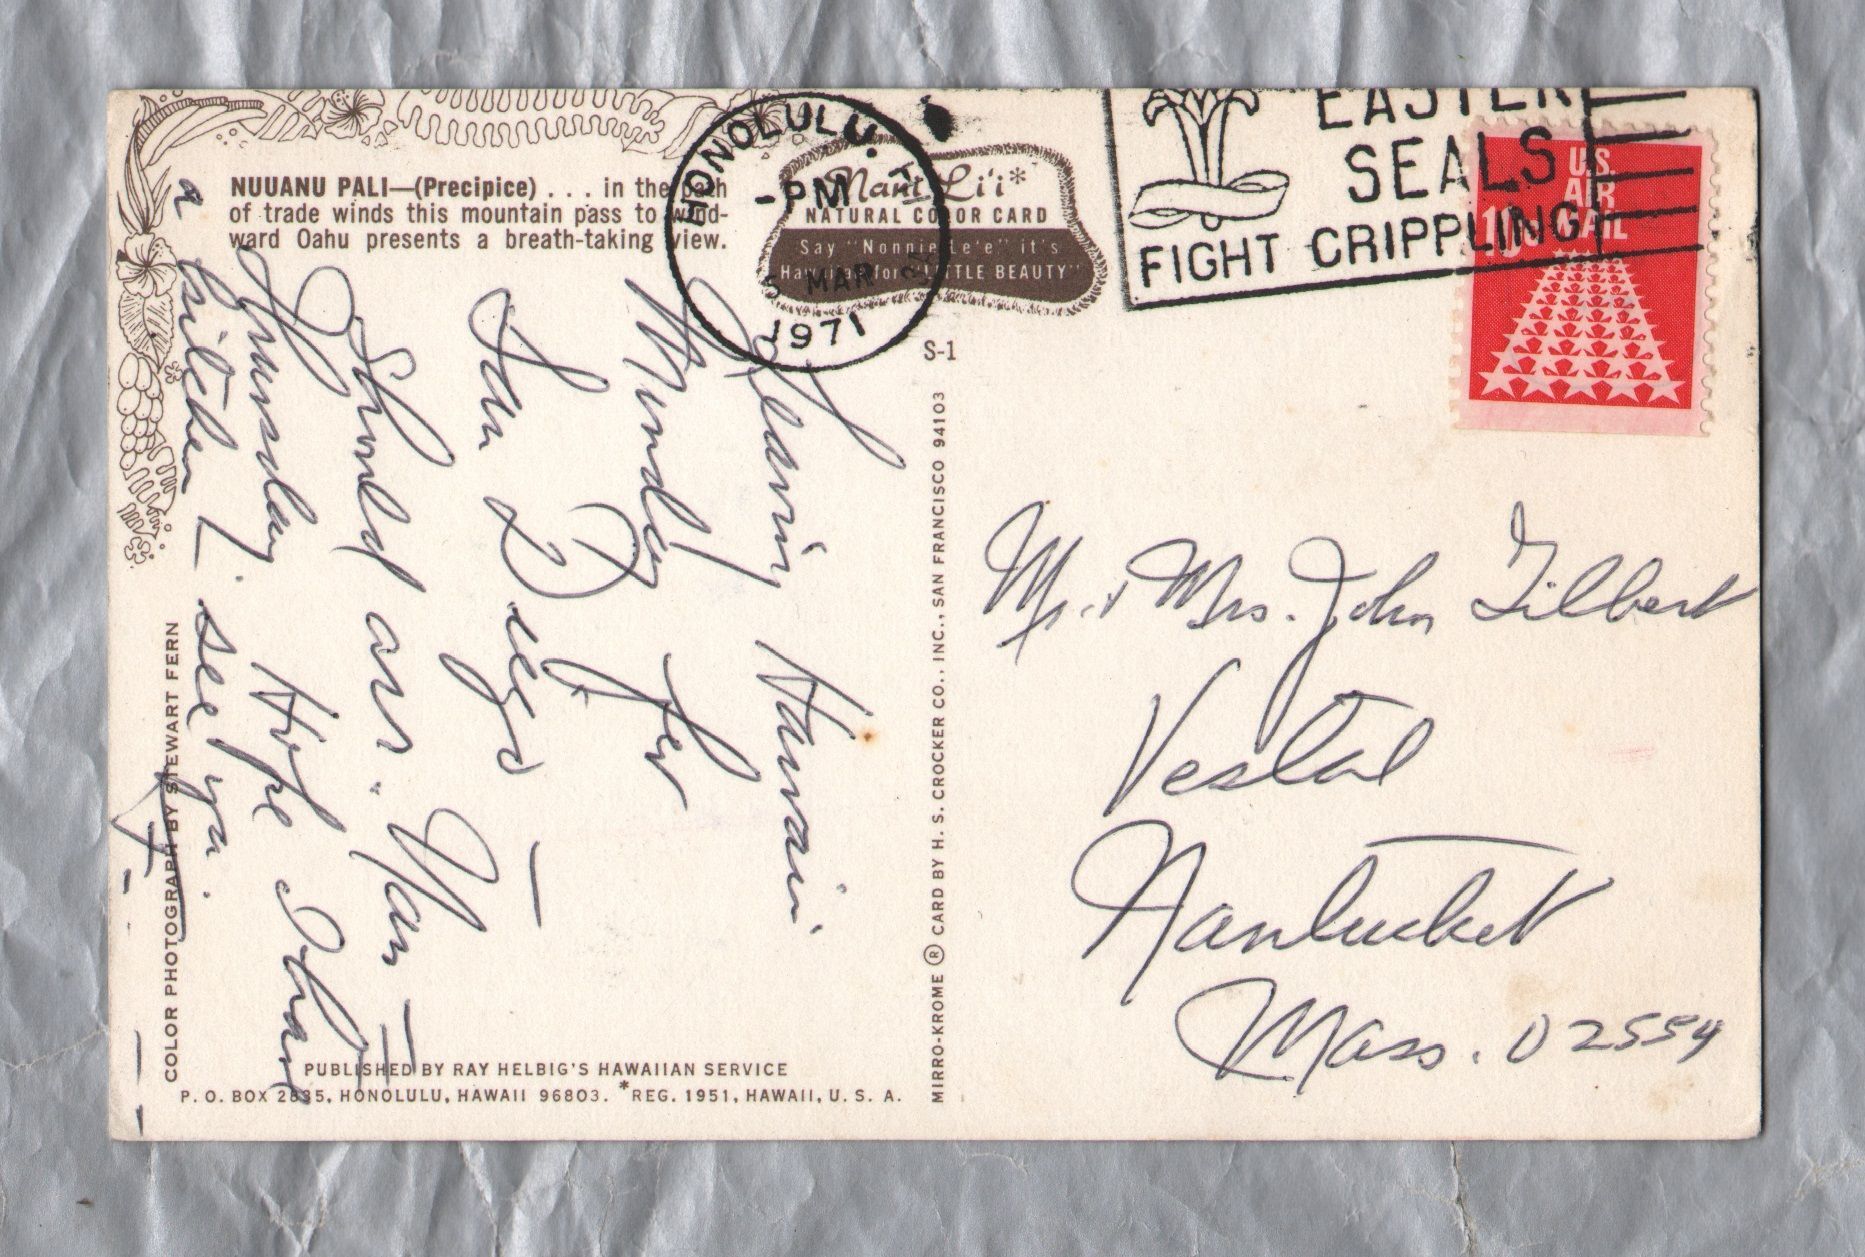 NUUANU PALI—(Precipice) . . . in the path
of trade winds this mountain pass to wind-
ward Oahu presents a breath-taking view.
HONOLULU.
-PM
5 MAR
1971
Nani Li'i*
NATURAL COLOR CARD
Say "Nonnie Le'e" it's
Hawaiian for "LITTLE BEAUTY"
S-1
EASTER
SEALS
FIGHT CRIPPLING
U.S.
AIR
MAIL
10c
Leaving Hawaii
Monday for
San Diego —
Should arr. Nan —
Thursday. Hope I have
a kitchen. See ya.
Mr. & Mrs. John Gilbert
Vestal
Nantucket
Mass. 02554
COLOR PHOTOGRAPH BY STEWART FERN
MIRRO-KROME ® CARD BY H. S. CROCKER CO., INC., SAN FRANCISCO 94103
PUBLISHED BY RAY HELBIG'S HAWAIIAN SERVICE
P. O. BOX 2835, HONOLULU, HAWAII 96803. *REG. 1951, HAWAII, U. S. A.